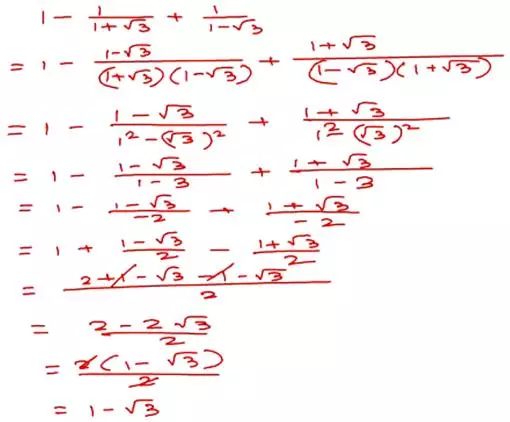 1 - 1/(1+√3) + 1/(1-√3)
= 1 - (1-√3)/((1+√3)(1-√3)) + (1+√3)/((1-√3)(1+√3))
= 1 - (1-√3)/(1²-(√3)²) + (1+√3)/(1² (√3)²)
= 1 - (1-√3)/(1-3) + (1+√3)/(1-3)
= 1 - (1-√3)/(-2) + (1+√3)/(-2)
= 1 + (1-√3)/2 - (1+√3)/2
= (2+1-√3-1-√3)/2
= (2-2√3)/2
= 2(1-√3)/2
= 1-√3